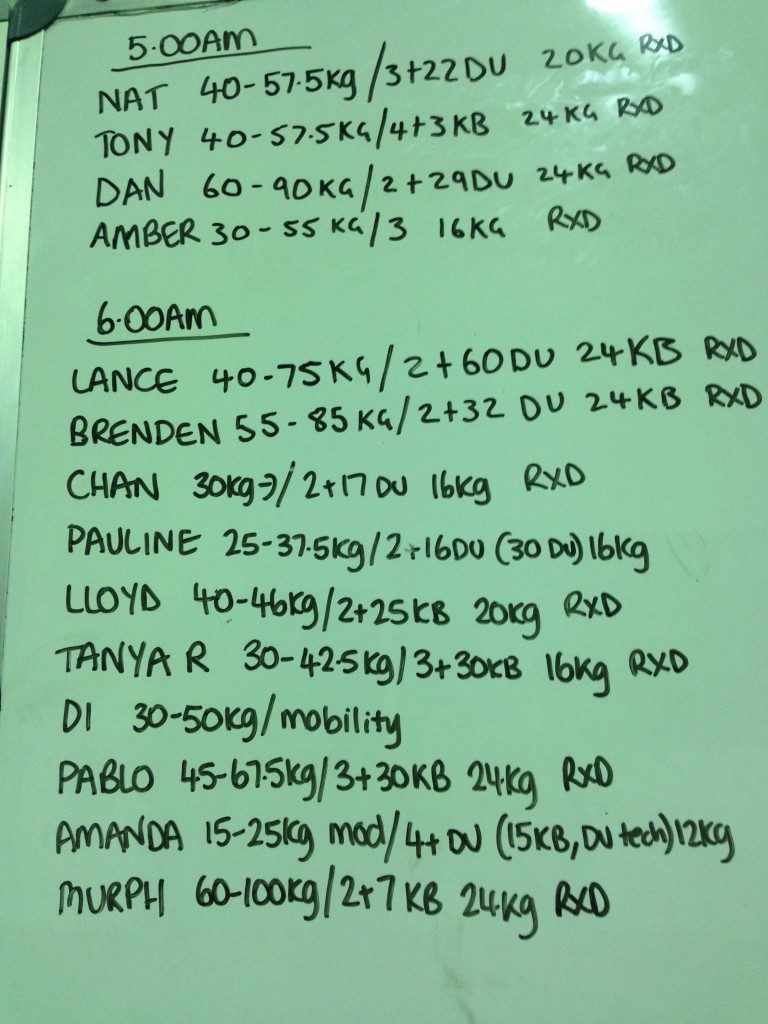 5.00AM
NAT 40-57.5kg/3+22DU 20KG RXD
TONY 40-57.5KG/4+3KB 24KG RXD
DAN 60-90KG/2+29DU 24KG RXD
AMBER 30-55KG/3 16KG RXD
6.00AM
LANCE 40-75KG/2+60DU 24KB RXD
BRENDEN 55-85KG/2+32 DU 24KB RXD
CHAN 30kg→/2+17DU 16kg RXD
PAULINE 25-37.5kg/2+16DU (30 DU) 16kg
LLOYD 40-46kg/2+25KB 20kg RXD
TANYA R 30-42.5kg/3+30KB 16kg RXD
DI 30-50kg/mobility
PABLO 45-67.5kg/3+30KB 24kg RXD
AMANDA 15-25kg mod/4+DU (15KB, DU tech) 12kg
MURPH 60-100kg/2+7KB 24kg RXD